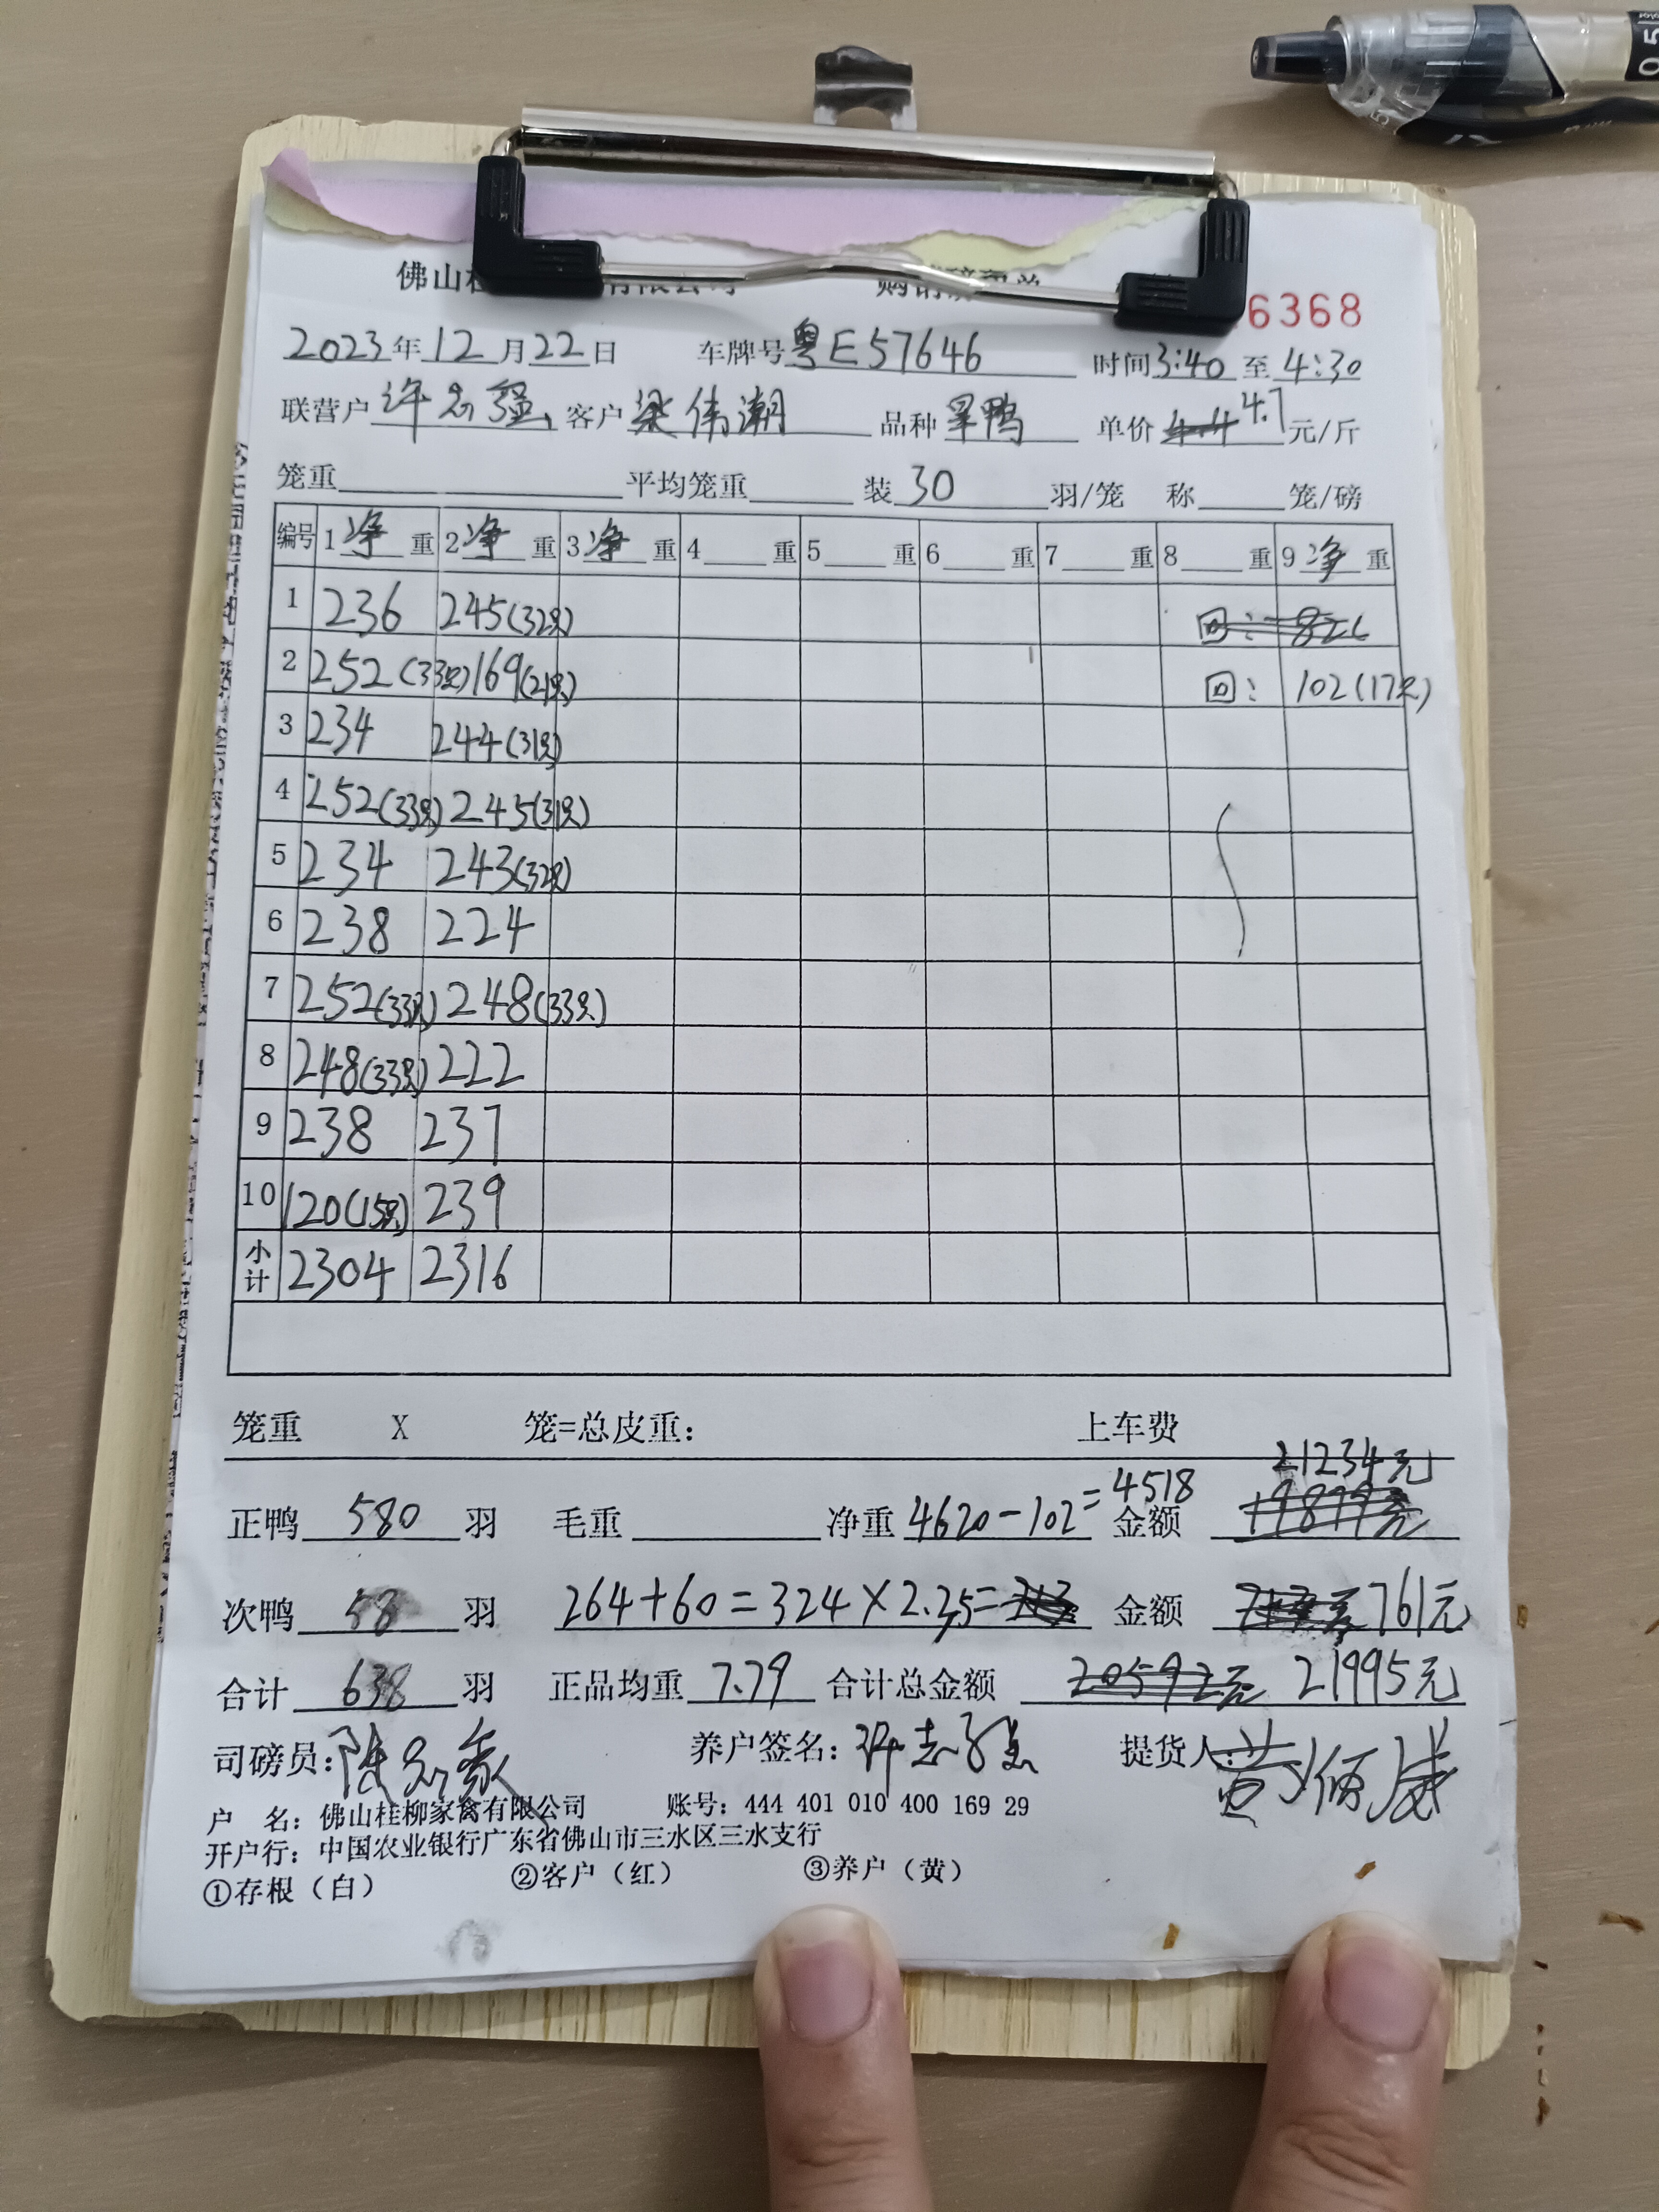 佛山桂 有限公司 购销 单 6368
2023年12月22日 车牌号粤E57646 时间3:40至4:30
联营户许志强 客户梁伟潮 品种旱鸭 单价4.4 4.7元/斤
笼重 平均笼重 装30羽/笼 称 笼/磅
编号 1净重 2净重 3净重 4 重 5 重 6 重 7 重 8 重 9净重
1 236 245(32只) 回:
2 252(33只) 169(21只) 回: 102(17只)
3 234 244(31只)
4 252(33只) 245(31只)
5 234 243(32只)
6 238 224
7 252(33只) 248(33只)
8 248(33只) 222
9 238 237
10 120(15只) 239
小计 2304 2316
笼重 X 笼=总皮重: 上车费
21234元
正鸭 580 羽 毛重 净重 4620-102=4518 金额 19879元
次鸭 58 羽 264+60=324×2.35= 金额 761元
合计 638 羽 正品均重 7.79 合计总金额 20592元 21995元
司磅员: 养户签名: 提货人:
户 名: 佛山桂柳家禽有限公司 账号: 444 401 010 400 169 29
开户行: 中国农业银行广东省佛山市三水区三水支行
①存根(白) ②客户(红) ③养户(黄)